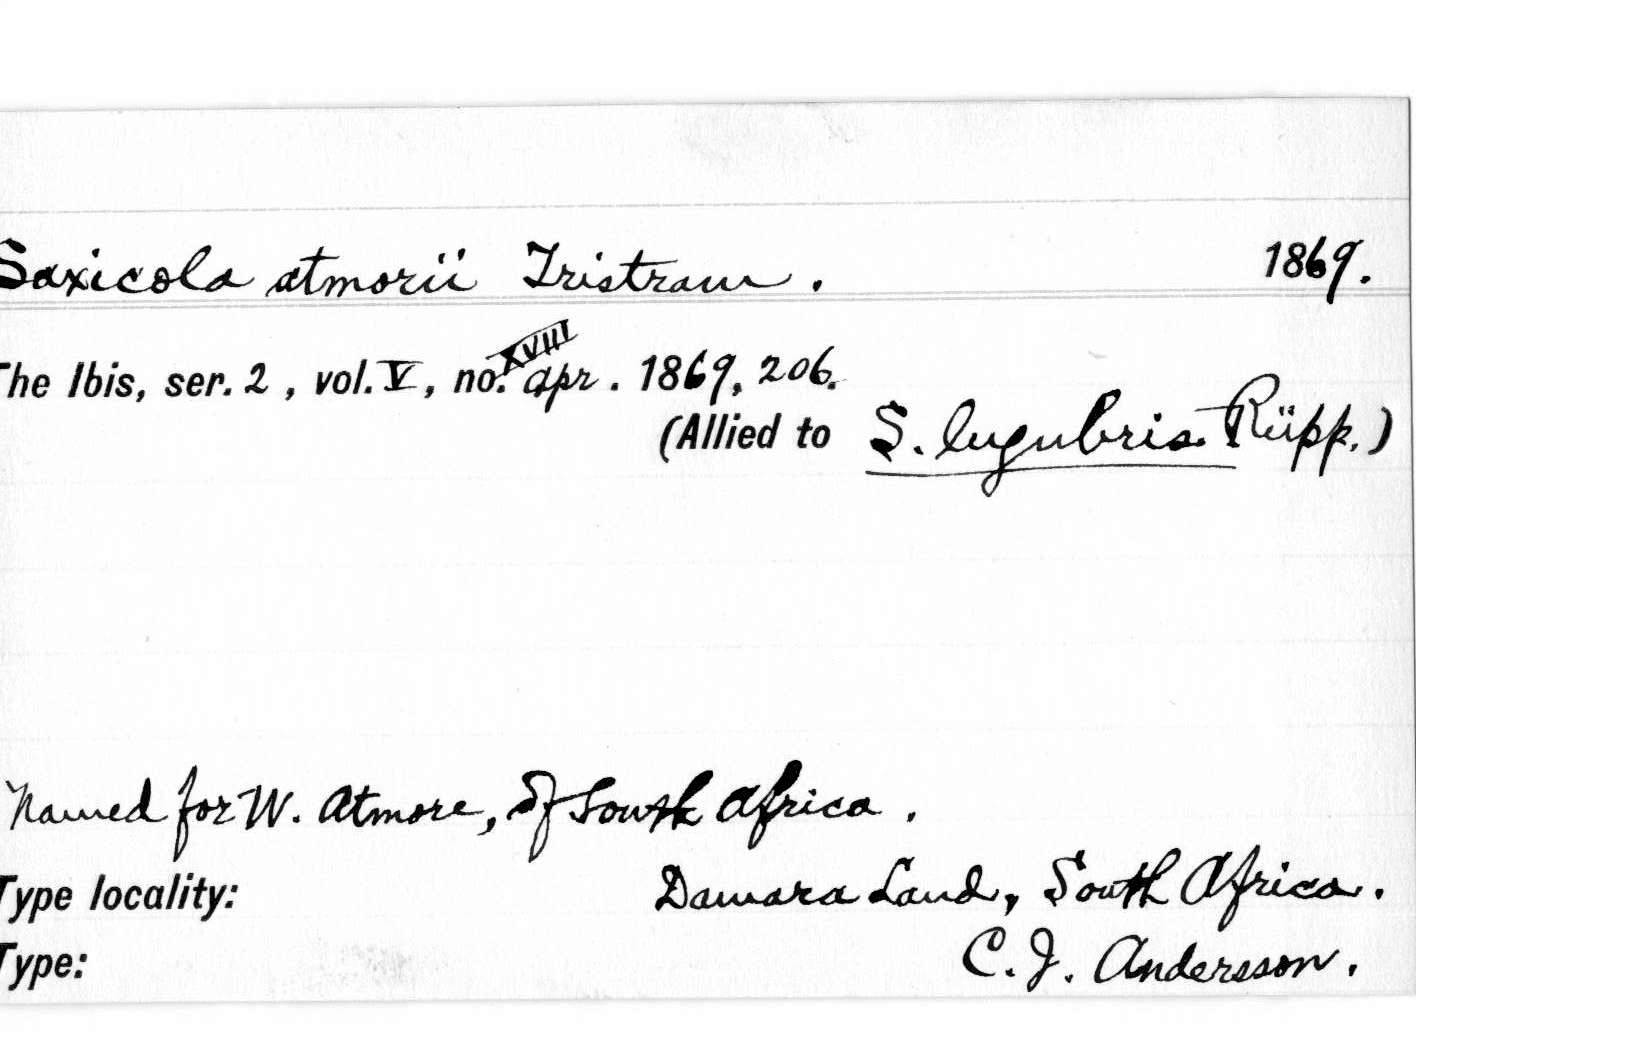 Saxicola atmorii Tristram. 1869.
The Ibis, ser. 2, vol. V, no. XVIII apr. 1869, 206.
(Allied to S. lugubris Rüpp.)
Named for W. Atmore, of South Africa.
Type locality: Damara Land, South Africa.
Type: C. J. Andersson.